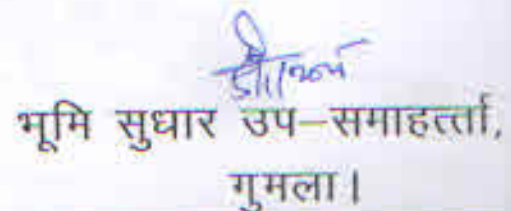 भूमि सुधार उप–समाहर्त्ता,
गुमला।